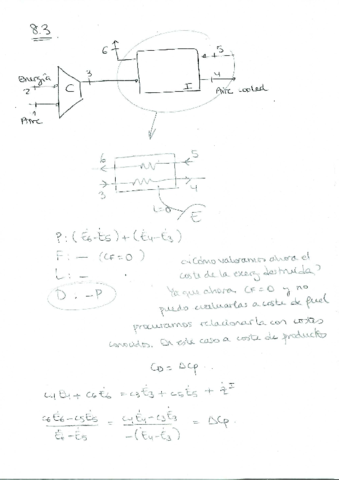 8.3
6
5
3
Energía
2
C
4
I
Aire
1
Aire cooled
6
5
3
4
L=0
E
P: (Ė6-Ė5) + (Ė4-Ė3)
F: — (CF=0)
L: —
D: -P
¿Cómo valoramos ahora el
coste de la exerg destruida?
Ya que ahora CF=0 y no
puedo evaluarlas a coste de fuel
procuramos relacionarla con costes
conocidos. En este caso a coste de producto
CD = ΔCp.
c4Ė4 + c6Ė6 = c3Ė3 + c5Ė5 + Ż^I
c6Ė6-c5Ė5 / Ė6-Ė5 = c4Ė4-c3Ė3 / -(Ė4-Ė3) = ΔCp.